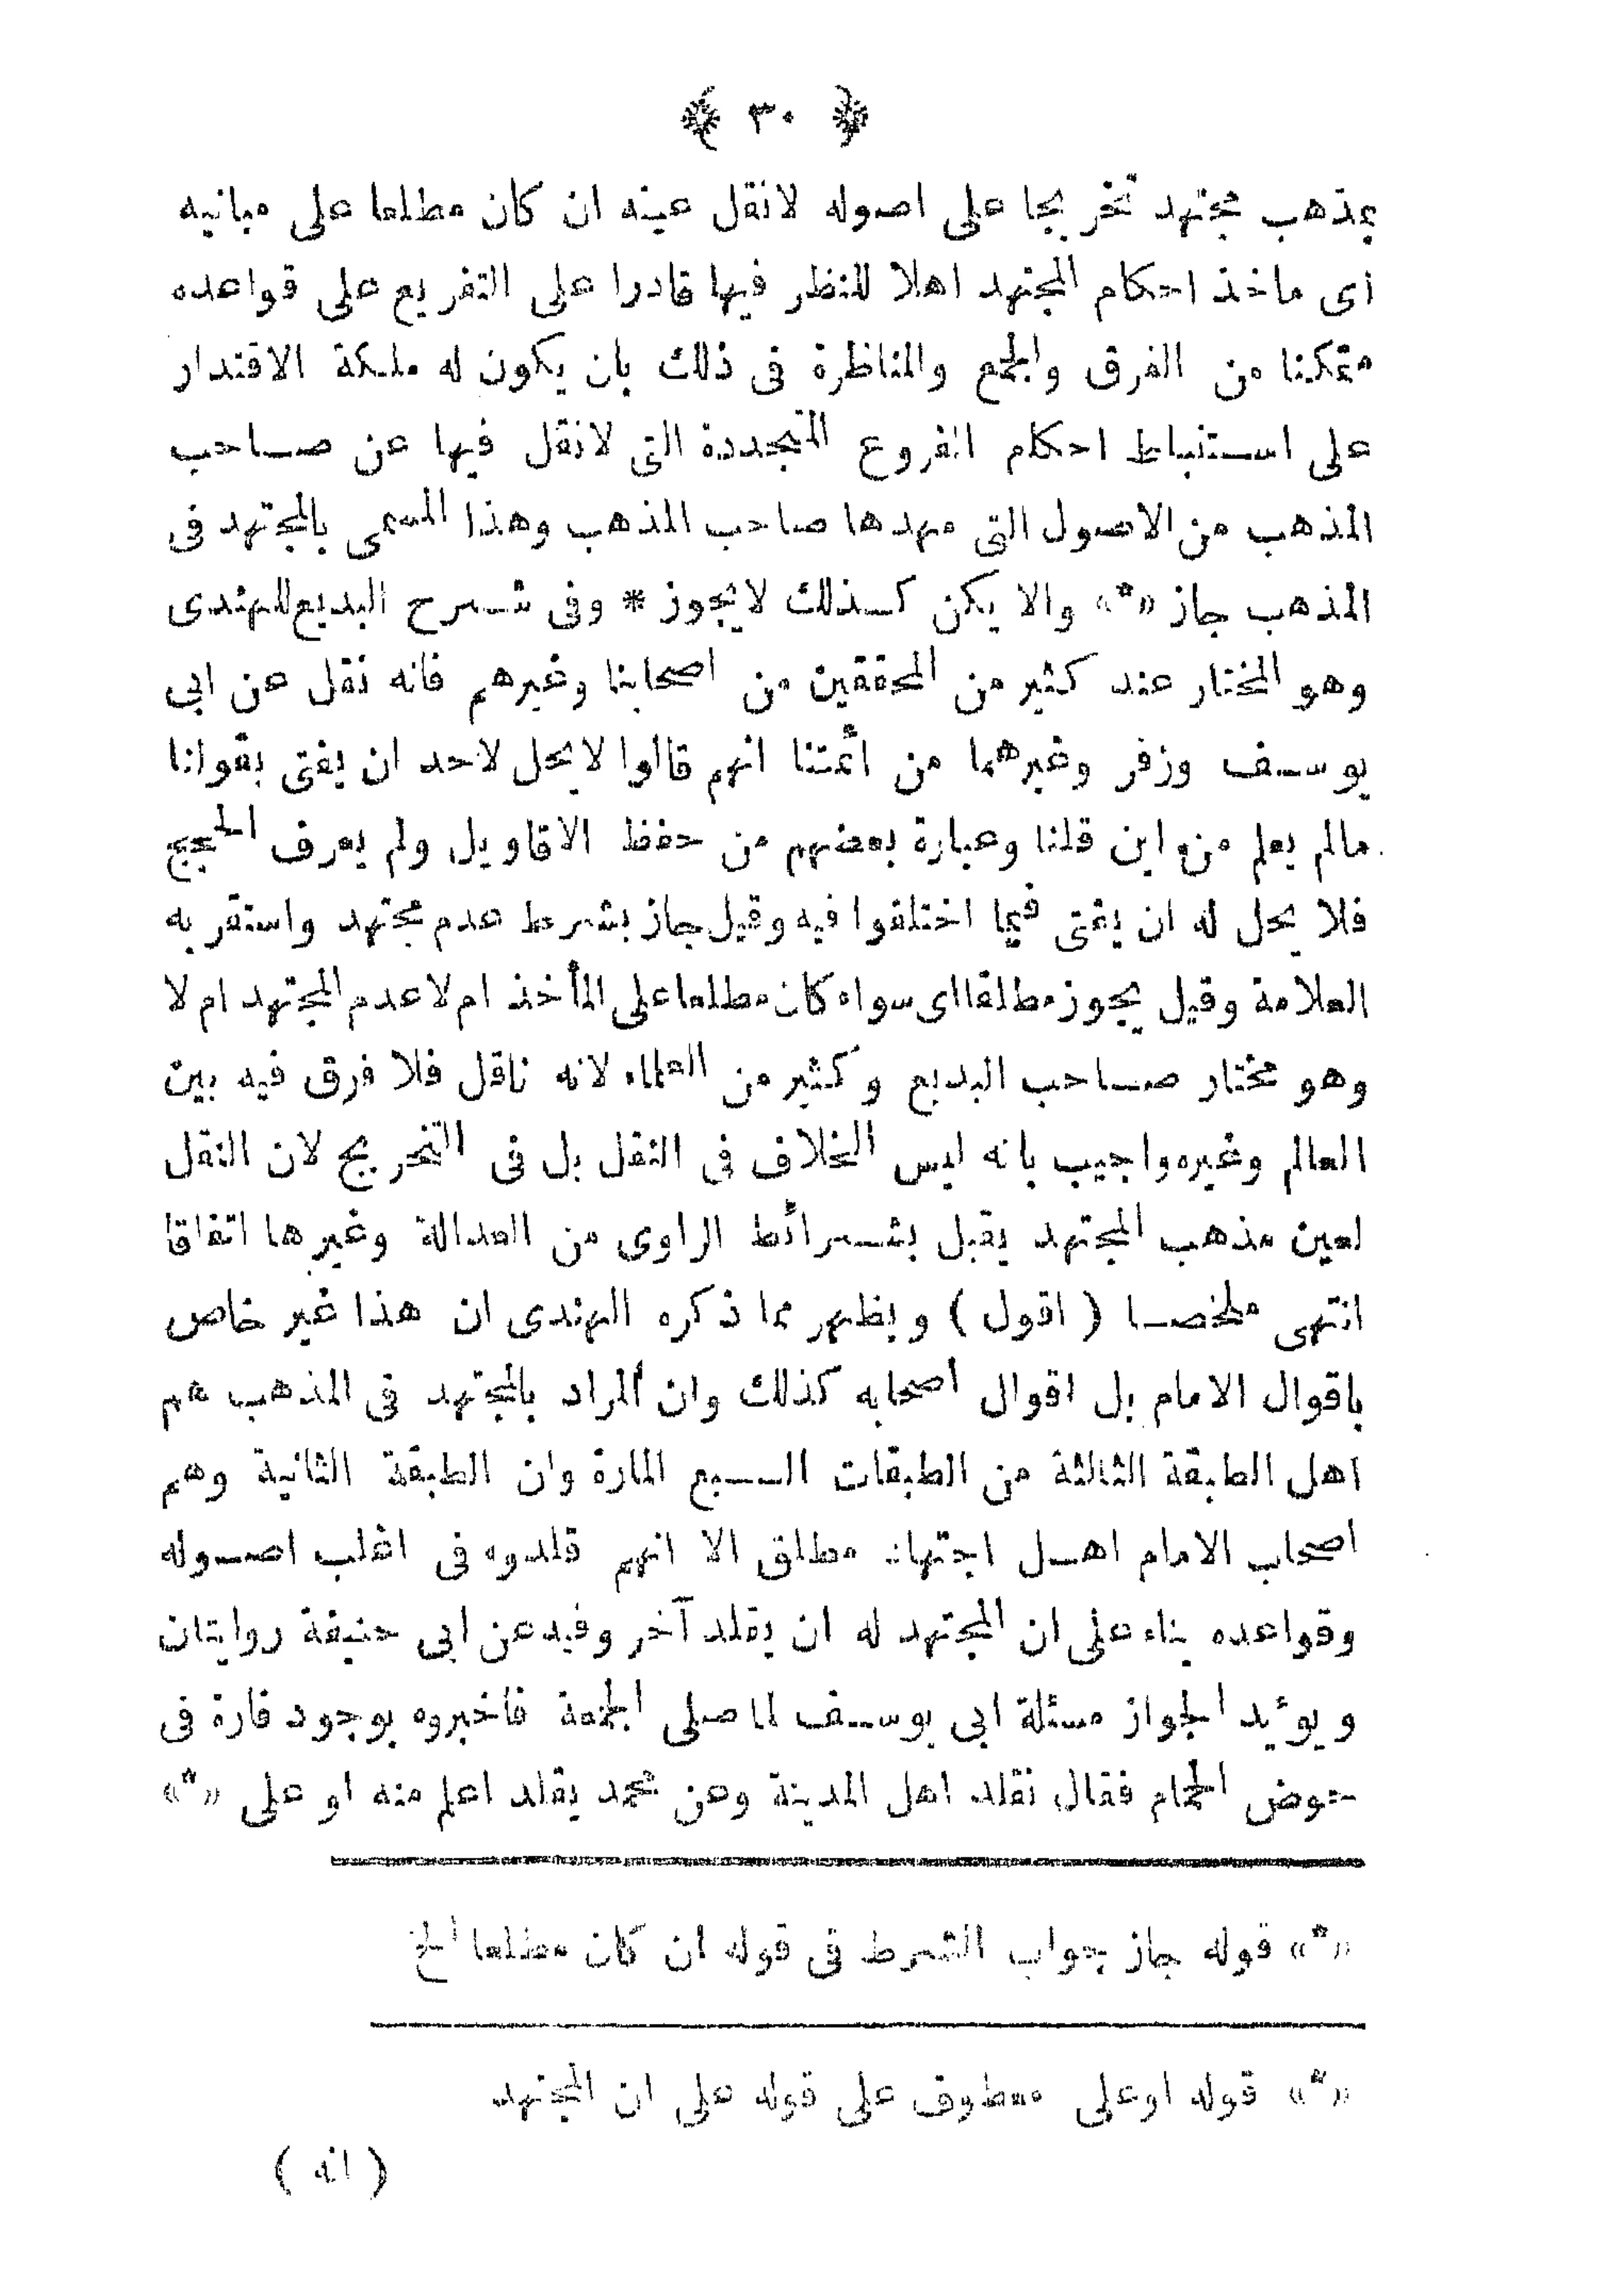 ﴿ ٣٠ ﴾
بمذهب مجتهد تخريجا على اصوله لانقل عينه ان كان مطلعا على مبانيه
اى ماخذ احكام المجتهد اهلا للنظر فيها قادرا على التفريع على قواعده
متمكنا من الفرق والجمع والمناظرة فى ذلك بان يكون له ملكة الاقتدار
على استنباط احكام الفروع المتجددة التى لانقل فيها عن صاحب
المذهب من الاصول التى مهدها صاحب المذهب وهذا المسمى بالمجتهد فى
المذهب جاز «٣» والا يكن كذلك لايجوز * وفى شرح البديع للهندى
وهو المختار عند كثير من المحققين من اصحابنا وغيرهم فانه نقل عن ابى
يوسف وزفر وغيرهما من أئمتنا انهم قالوا لايحل لاحد ان يفتى بقولنا
مالم يعلم من اين قلنا وعبارة بعضهم من حفظ الاقاويل ولم يعرف الحجج
فلا يحل له ان يفتى فيما اختلفوا فيه وقيل جاز بشرط عدم مجتهد واستقر به
العلامة وقيل يجوز مطلقا اى سواء كان مطلعا على المأخذ ام لا عدم المجتهد ام لا
وهو مختار صاحب البديع وكثير من العلماء لانه ناقل فلا فرق فيه بين
العالم وغيره واجيب بانه ليس الخلاف فى النقل بل فى التخريج لان النقل
لعين مذهب المجتهد يقبل بشرائط الراوى من العدالة وغيرها اتفاقا
انتهى ملخصا ( اقول ) ويظهر مما ذكره الهندى ان هذا غير خاص
باقوال الامام بل اقوال اصحابه كذلك وان المراد بالمجتهد فى المذهب هم
اهل الطبقة الثالثة من الطبقات السبع المارة وان الطبقة الثانية وهم
اصحاب الامام اهل اجتهاد مطلق الا انهم قلدوه فى اغلب اصوله
وقواعده بناء على ان المجتهد له ان يقلد آخر وفيه عن ابى حنيفة روايتان
ويؤيد الجواز مسئلة ابى يوسف لما صلى الجمعة فاخبروه بوجود فارة فى
حوض الحمام فقال نقلد اهل المدينة وعن محمد يقلد اعلم منه او على «٣»
«٣» قوله جاز جواب الشرط فى قوله ان كان مطلعا الخ
«٣» قوله اوعلى معطوف على قوله على ان المجتهد
( انه )